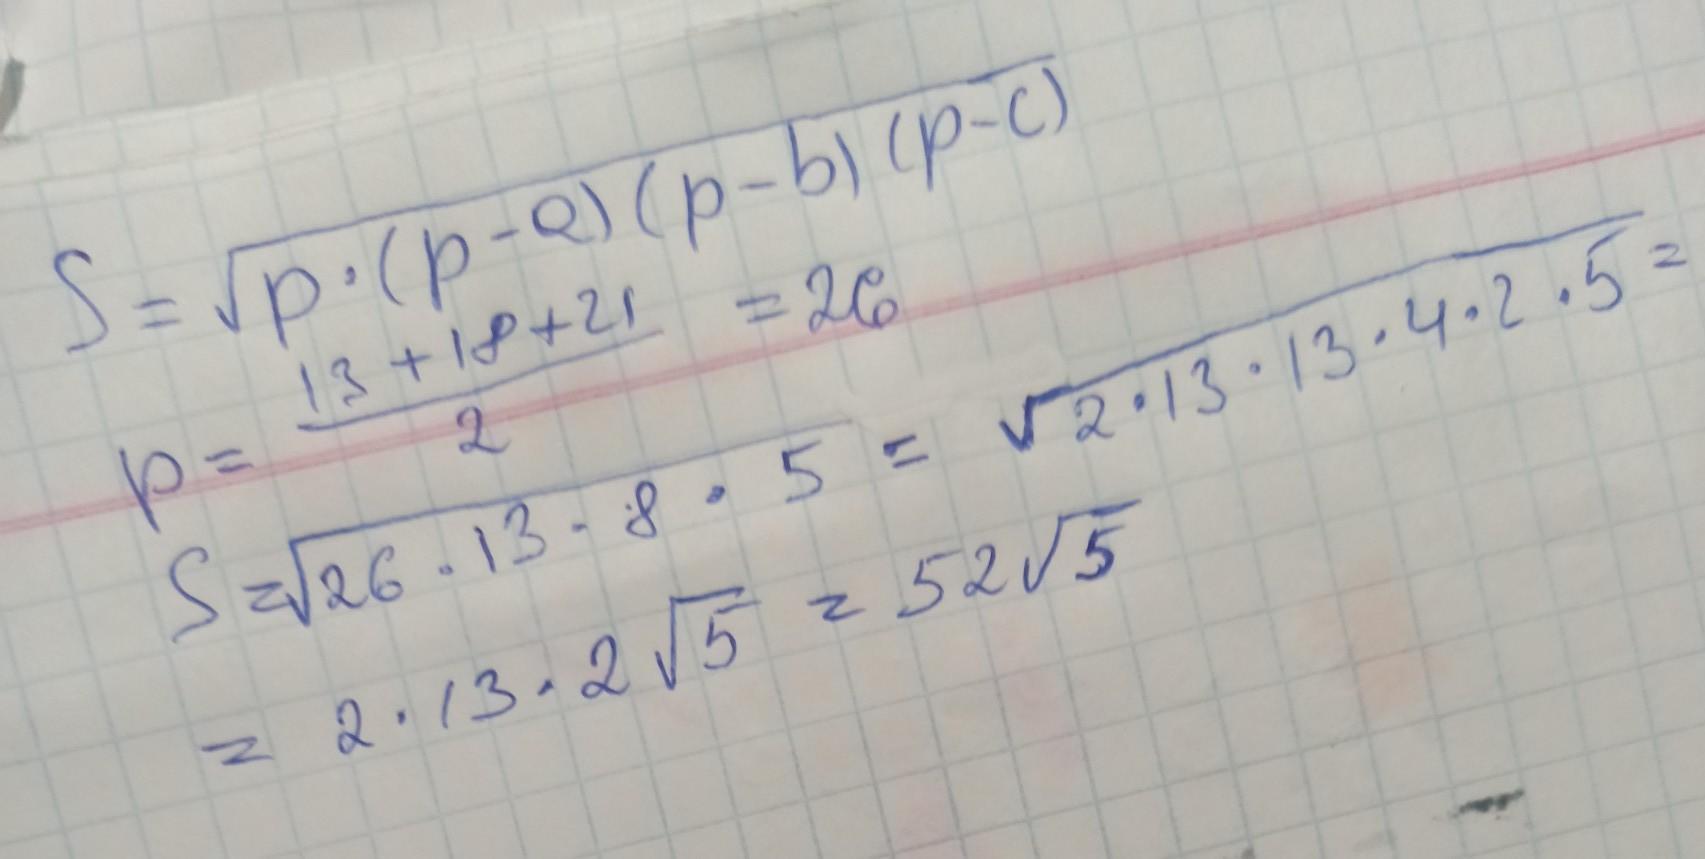 S = √p·(p-a)(p-b)(p-c)
p = (13+18+21)/2 = 26
S = √26·13·8·5 = √2·13·13·4·2·5 =
= 2·13·2√5 = 52√5